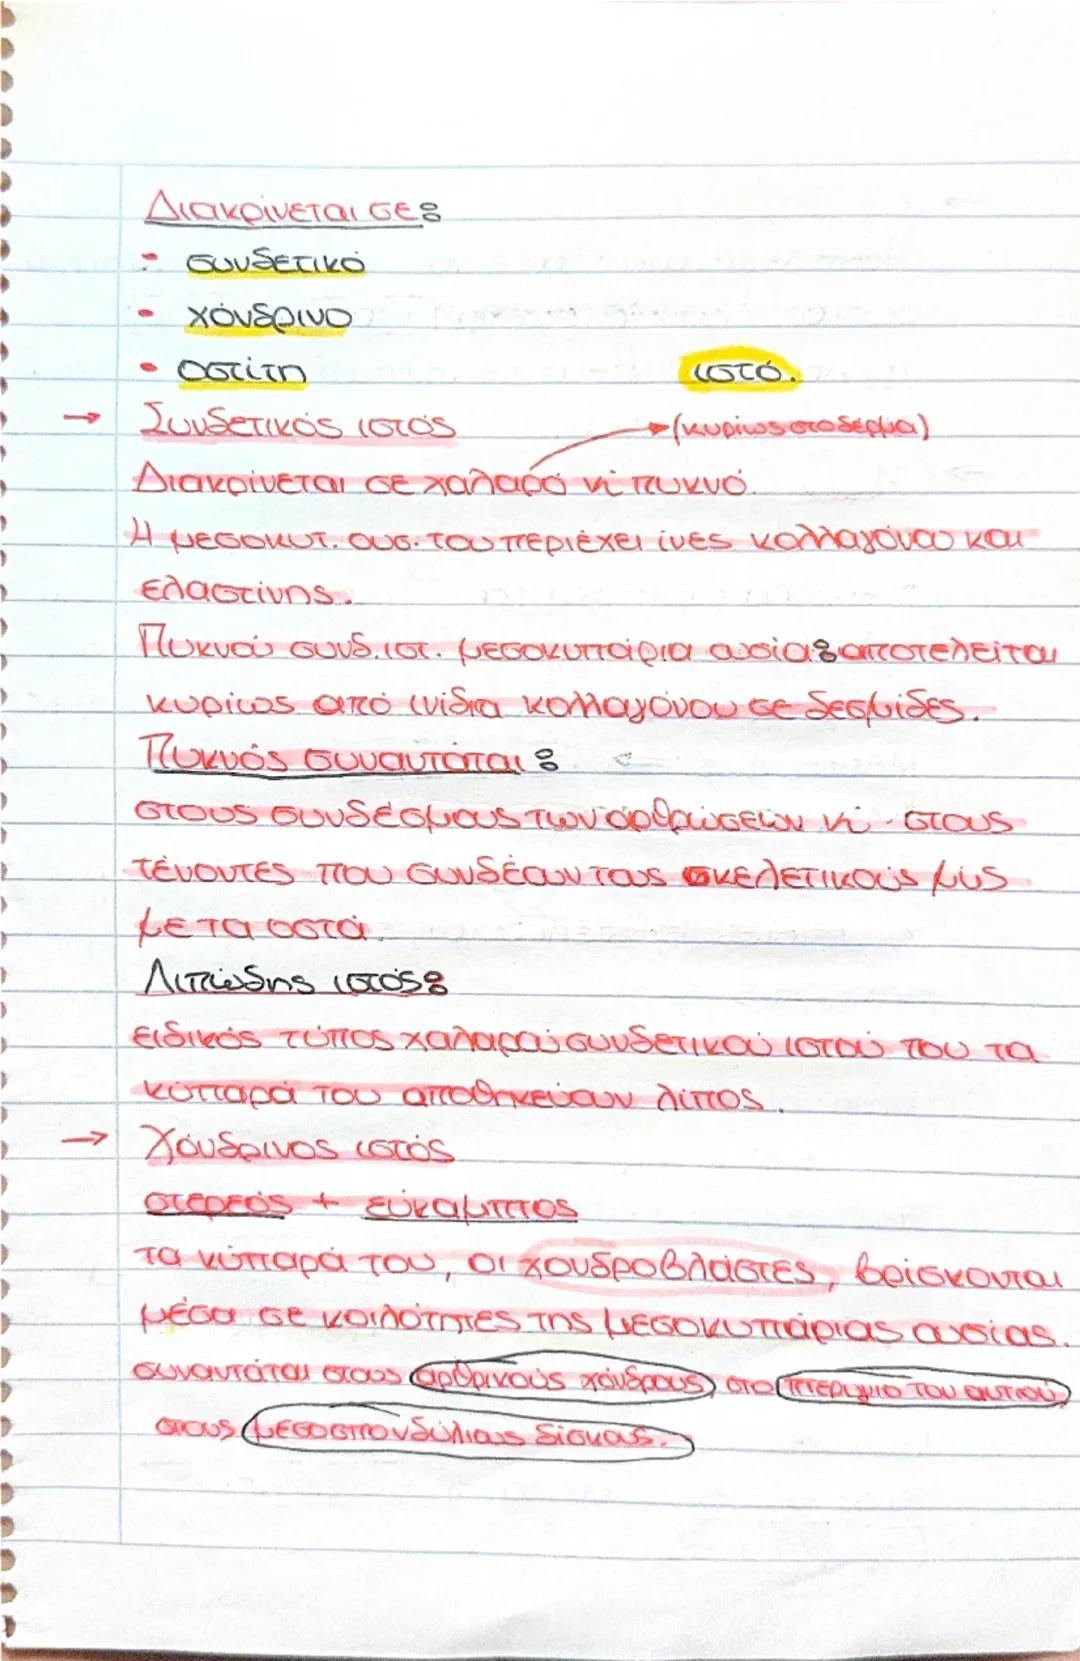 Διακρίνεται σε:
• συνδετικό
• χόνδρινο
• οστίτη ιστό.
→ Συνδετικός ιστός →(κυρίως στο δέρμα)
Διακρίνεται σε χαλαρό κ' πυκνό.
Η μεσοκυτ. ουσ. του περιέχει ίνες κολλαγόνου και
ελαστίνης.
Πυκνού συνδ. ιστ. μεσοκυττάρια ουσία: αποτελείται
κυρίως από ινίδια κολλαγόνου σε δεσμίδες.
Πυκνός συναντάται:
στους συνδέσμους των αρθρώσεων κ' στους
τένοντες που συνδέουν τους σκελετικούς μύς
με τα οστά.
Λιπώδης ιστός:
ειδικός τύπος χαλαρού συνδετικού ιστού που τα
κύτταρά του αποθηκεύουν λίπος.
→ Χόνδρινος ιστός
στερεός + εύκαμπτος
τα κύτταρά του, οι χονδροβλάστες, βρίσκονται
μέσα σε κοιλότητες της μεσοκυττάριας ουσίας.
συναντάται στους αρθρικούς χόνδρους, στο πτερύγιο του αυτιού,
στους μεσοσπονδύλιους δίσκους.